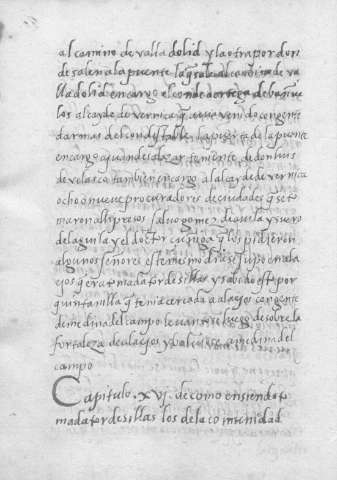 al camino de valladolid y la otra por don
de salen a la puente la q̃ sale al camino de va
lladolid encargo el conde a ortega de bañue
los alcayde de vernica q̃ avia venido con gente
darmas del condestable la puerta de la puente
encargo a juan de salazar teniente de don luis
de velasco tambien encargo al alcayde de vernica
ocho o nueve procuradores de ciudades q̃ se to
maron alli presos / al uº gomez de avila y suero
del aguila y el doctor çuñiga q̃ los pidieron
algunos señores este mesmo dia se supo en ala
ejos q̃ era tomada tordesillas y sabido esto por
quintanilla q̃ tenia cercada a alaejos con gente
de medina del campo levantose luego de sobre la
fortaleza de alaejos y bolviose a medina del
campo
Capitulo .xvj. de como en siendo to
mada tordesillas los de la comunidad